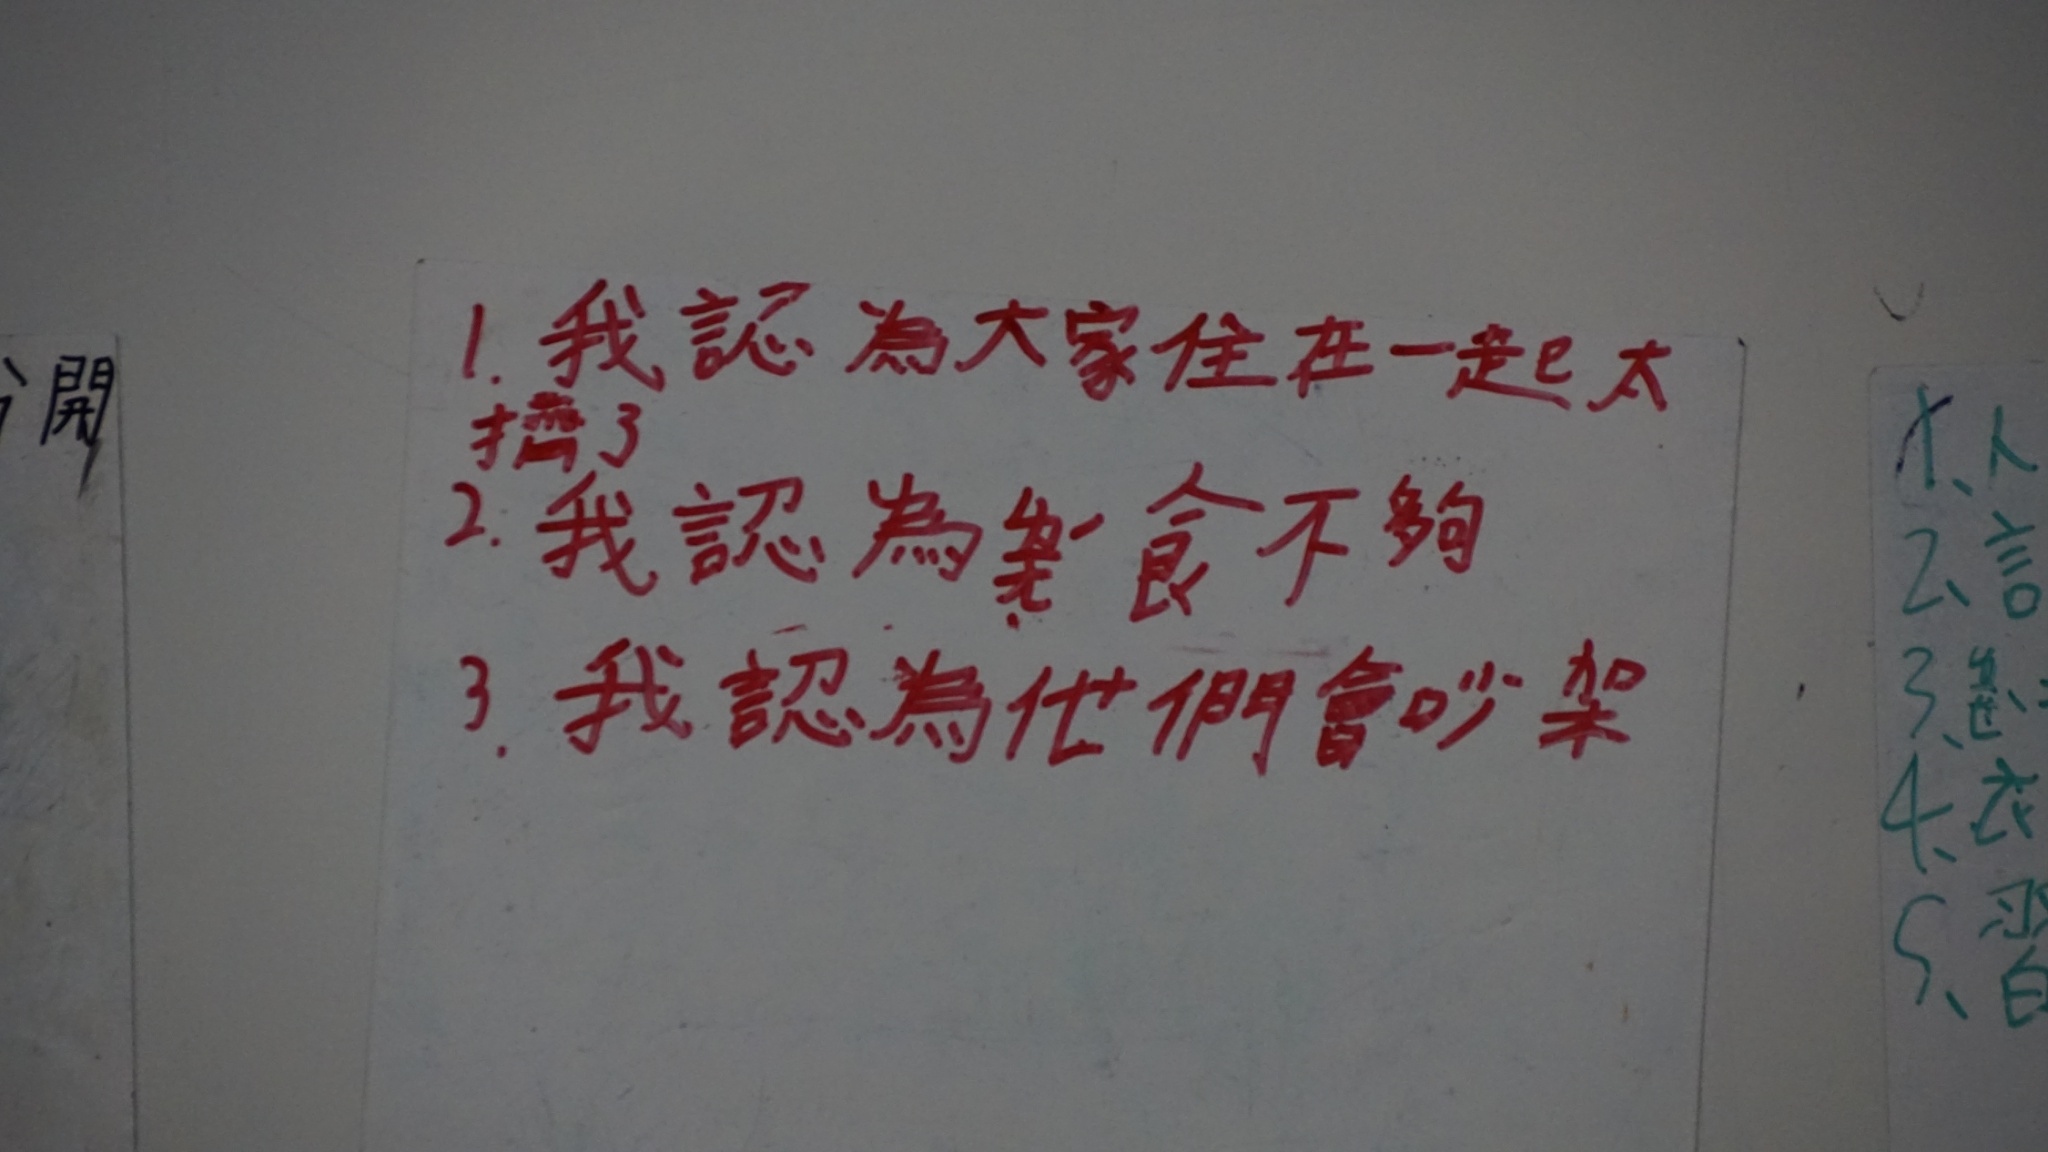 開
1. 我認為大家住在一起太
擠了
2. 我認為 食不夠
3. 我認為他們會吵架
1、人
2、言
3、
4、衣
5、習